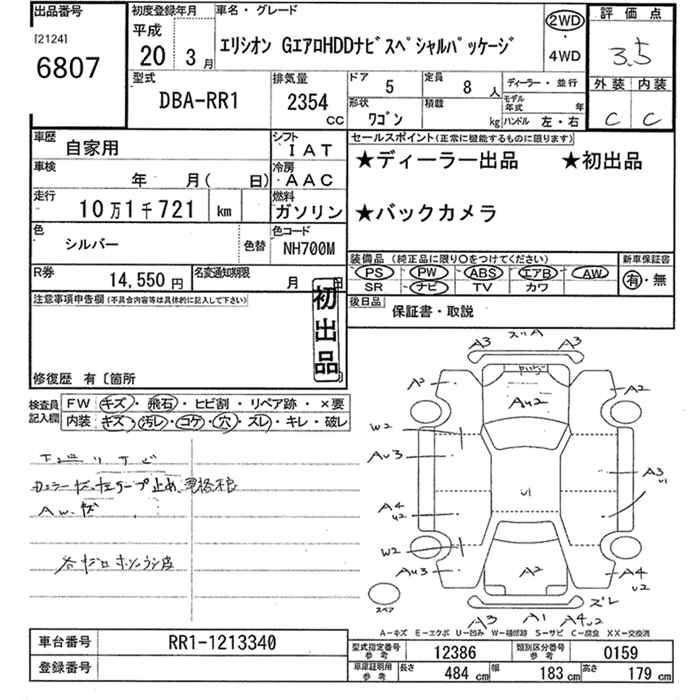 出品番号
[2124]
6807
初度登録年月
平成
20 3月
車名・グレード
エリシオン GエアロHDDナビスペシャルパッケージ
2WD
・
4WD
評価点
3.5
外装 内装
C C
型式
DBA-RR1
排気量
2354
CC
ドア
5
定員
8 人
形状
ワゴン
積載
kg
ディーラー・並行
モデル年式 年
ハンドル 左・右
車歴
自家用
シフト
IAT
車検
年 月( 日)
冷房
AAC
走行
10万1千721 km
燃料
ガソリン
色
シルバー
色替
色コード
NH700M
R券
14,550円
名変通知期限
月 日
セールスポイント(正常に機能するものに限ります)
★ディーラー出品 ★初出品
★バックカメラ
装備品 (純正品に限り○をつけてください)
PS PW ABS エアB AW
SR ナビ TV カワ
新車保証書
有・無
後日品
保証書・取説
注意事項申告欄(不具合内容等は具体的に記入して下さい)
初出品
修復歴 有〔箇所
検査員記入欄
FW キズ・飛石・ヒビ割・リペア跡・×要
内装 キズ・汚レ・コゲ・穴・ズレ・キレ・破レ
AW.キズ
スリA
A3 A3
A2 A2
AU2
W2
AU3
A3
U1
U1
A4
U2
W2
AU3
A2
A4
U2
ズレ
A3 A1 A4U2
スペア
A－キズ E－エクボ U－凹み W－補修跡 S－サビ C－腐食 XX－交換済
車台番号
RR1-1213340
登録番号
型式指定番号
参考
12386
類別区分番号
参考
0159
車庫証明用
参考
長さ
484 cm
幅
183 cm
高さ
179 cm